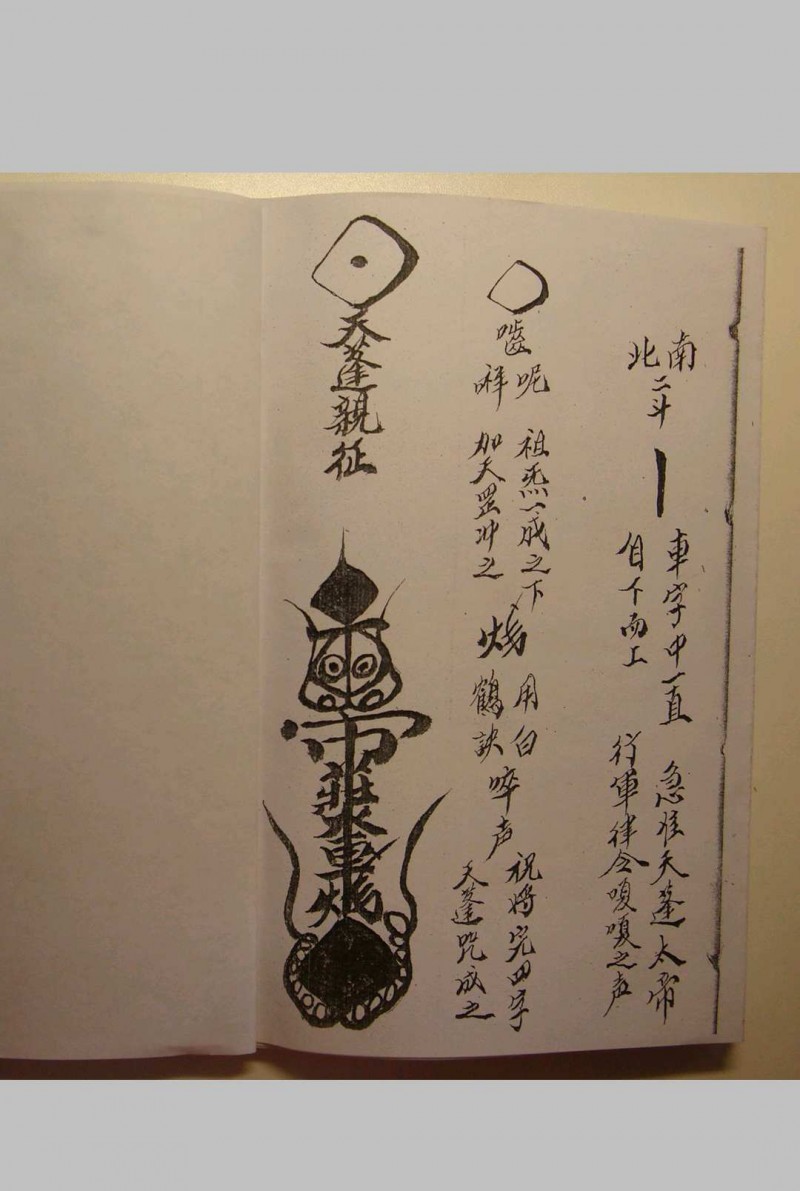 南北二斗
車字中一直
自下而上
急准天蓬太帝
行軍律令嗄嗄之声
嚙
呢
哶
祖炁一成之下
加天罡冲之
用白
鶴訣
啐声
祝將完四字
天蓬咒成之
天蓬親征
帝
車